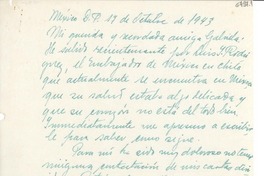 México D.F. 19 de Octubre de 1943
Mi querida y recordada amiga Gabriela:
He sabido recientemente por Luis I. Rodrí-
guez, el Embajador de México en Chile
que actualmente se encuentra en México
que su salud estaba algo delicada y
que su corazón no está del todo bien
Inmediatamente me apresuro a escribirle
para saber como sigue.
Para mí ha sido muy doloroso no tener
ninguna contestación de mis cartas des